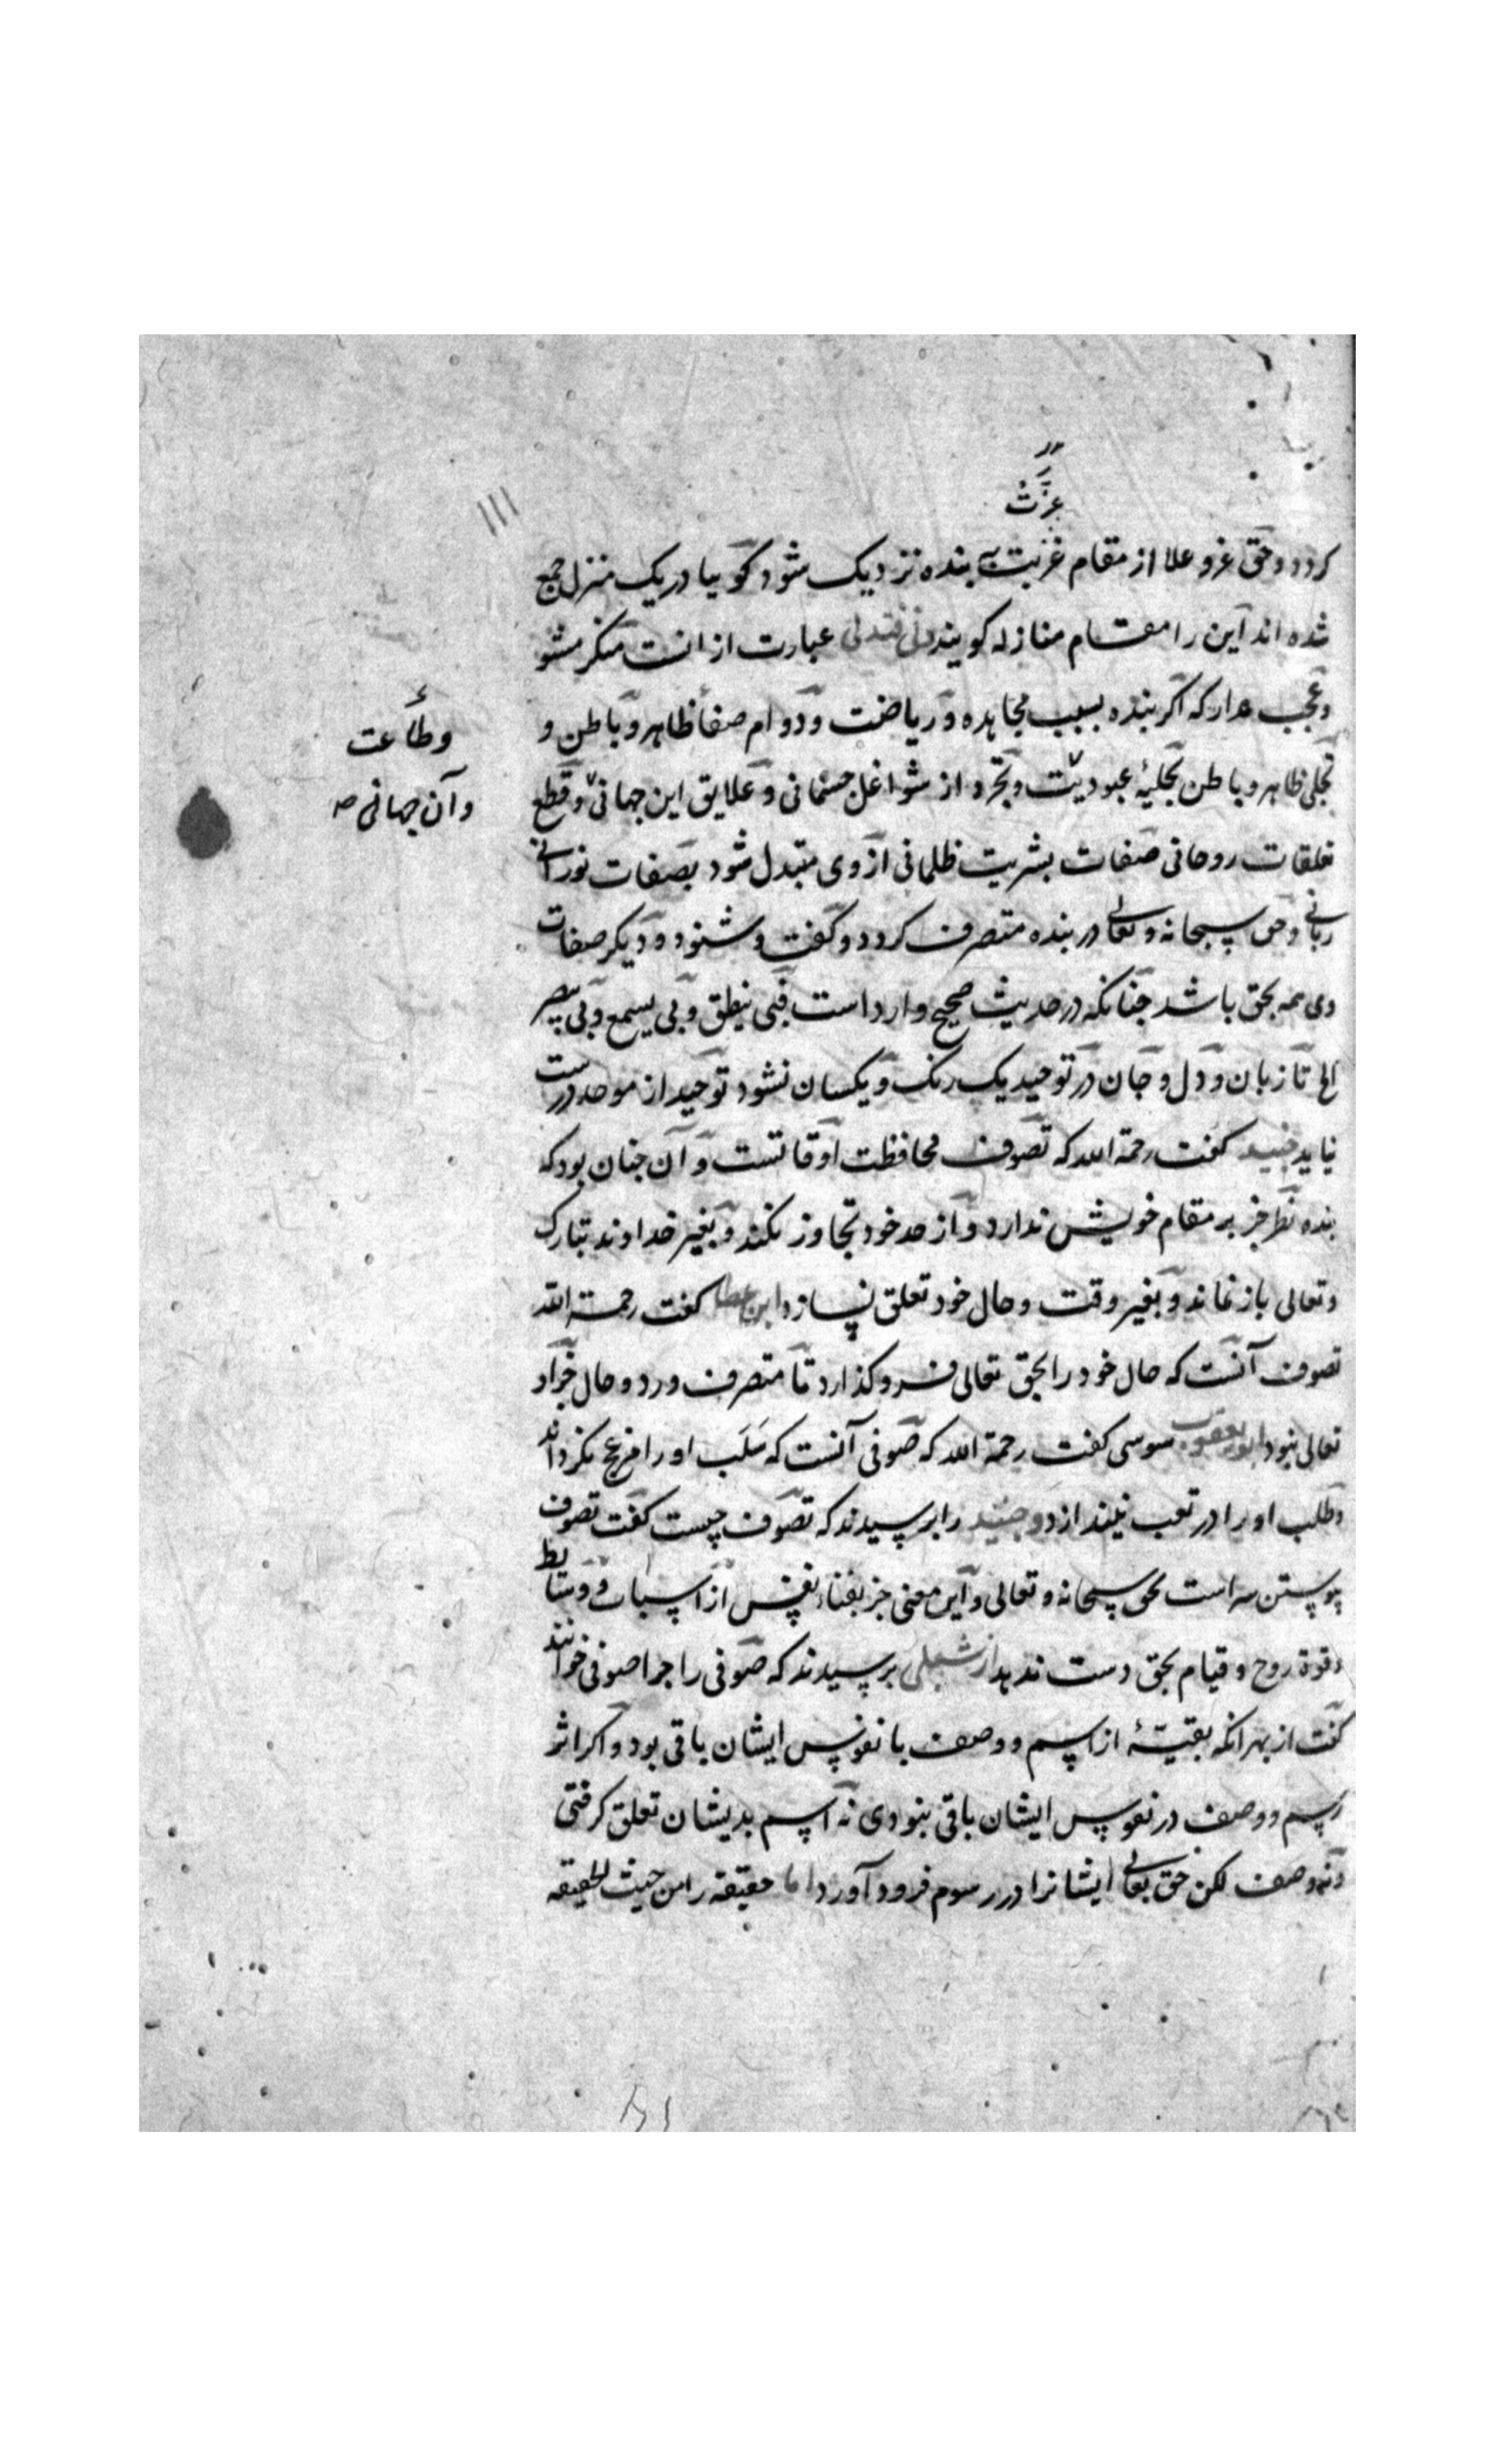 عزّت
کردد و حق عز و علا از مقام عزت به بنده نزدیک شود کویا در یک منزل جمع
شده اند این را مقام منازله کویند دنی فتدلی عبارت از انست منکر مشو
و عجب مدار که اکر بنده بسبب مجاهده و ریاضت و دوام صفاء ظاهر و باطن و
وطاعت
تجلی ظاهر و باطن بحلیهٔ عبودیّت و تجرد از شواغل جسمانی و علایق این جهانی و قطع
و آن جهانی صح
تعلقات روحانی صفات بشریت ظلمانی از وی متبدل شود بصفات نورانی
ربانی و حق سبحانه و تعالی در بنده متصرف کردد و کفت و شنود و دیکر صفات
وی همه بحق باشد جنانکه در حدیث صحیح وارد است فبی ینطق و بی یسمع و بی یبصر
الخ تا زبان و دل و جان در توحید یک رنک و یکسان نشود توحید از موحد درست
نیاید جنید کفت رحمة الله که تصوف محافظت اوقاتست و آن جنان بود که
بنده نظر جز بر مقام خویش ندارد و از حد خود تجاوز نکند و بغیر خداوند تبارک
و تعالی باز نماند و بغیر وقت و حال خود تعلق نسازد ابن عطا کفت رحمة الله
تصوف آنست که حال خود را بحق تعالی فرو کذارد تا متصرف ورد و حال جز او
تعالی نبود ابو یعقوب سوسی کفت رحمة الله که صوفی آنست که سَلَب او را مزعج نکرداند
و طلب او را در تعب نیندازد و جنید را برسیدند که تصوف چیست کفت تصوف
پیوستن سر است بحق سبحانه و تعالی و این معنی جز بفناء نفس از اسباب و وسایط
و قوة روح و قیام بحق دست ندهد از شبلی برسیدند که صوفی را جرا صوفی خوانند
کفت از بهر انکه بقیّهٔ از اسم و وصف با نفوس ایشان باقی بود و اکر اثر
رسم و وصف در نفوس ایشان باقی نبودی نه اسم بدیشان تعلق کرفتی
و نه وصف لکن حق تعالی ایشانرا در رسوم فرود آورد اما حقیقه را من حیث الحقیقه